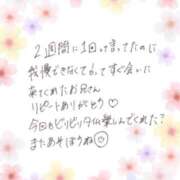 2週間に1回って言ってたのに
我慢できなくてってすぐ会いに
来てくれたお兄さん
リピートありがとう♡
今日もビリビリタイム楽しんでくれた?
またあそぼうね♡